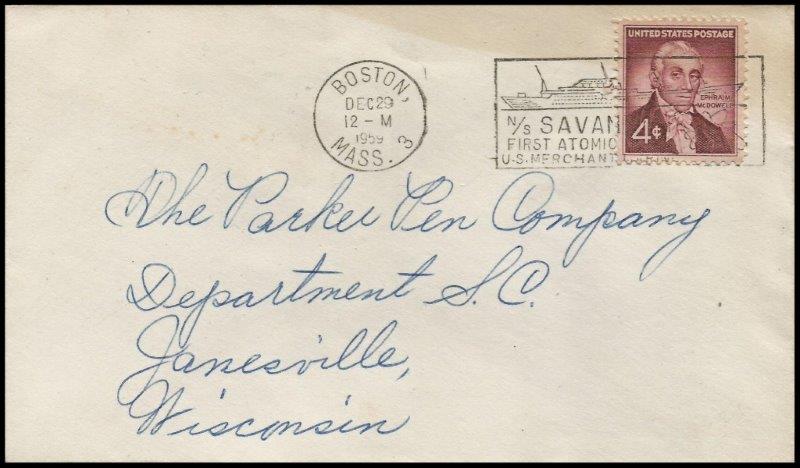 BOSTON,
DEC 29
12-M
1959
MASS. 3
N/S SAVAN
FIRST ATOMIC
U.S. MERCHANT
UNITED STATES POSTAGE
EPHRAIM
McDOWELL
4¢
The Parker Pen Company
Department S.C.
Janesville,
Wisconsin